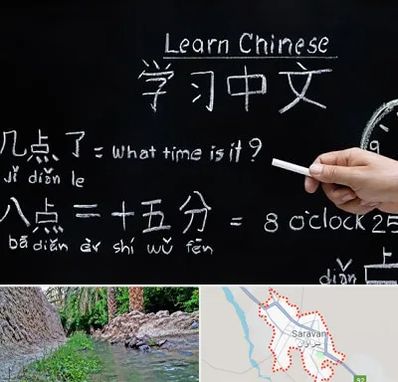 Learn Chinese
学习中文
9
几点了 = what time is it ?
Jǐ diǎn le
八点二十五分 = 8 o'clock 25
bā diǎn èr shí wǔ fēn
diǎn
Saravan
سراوان